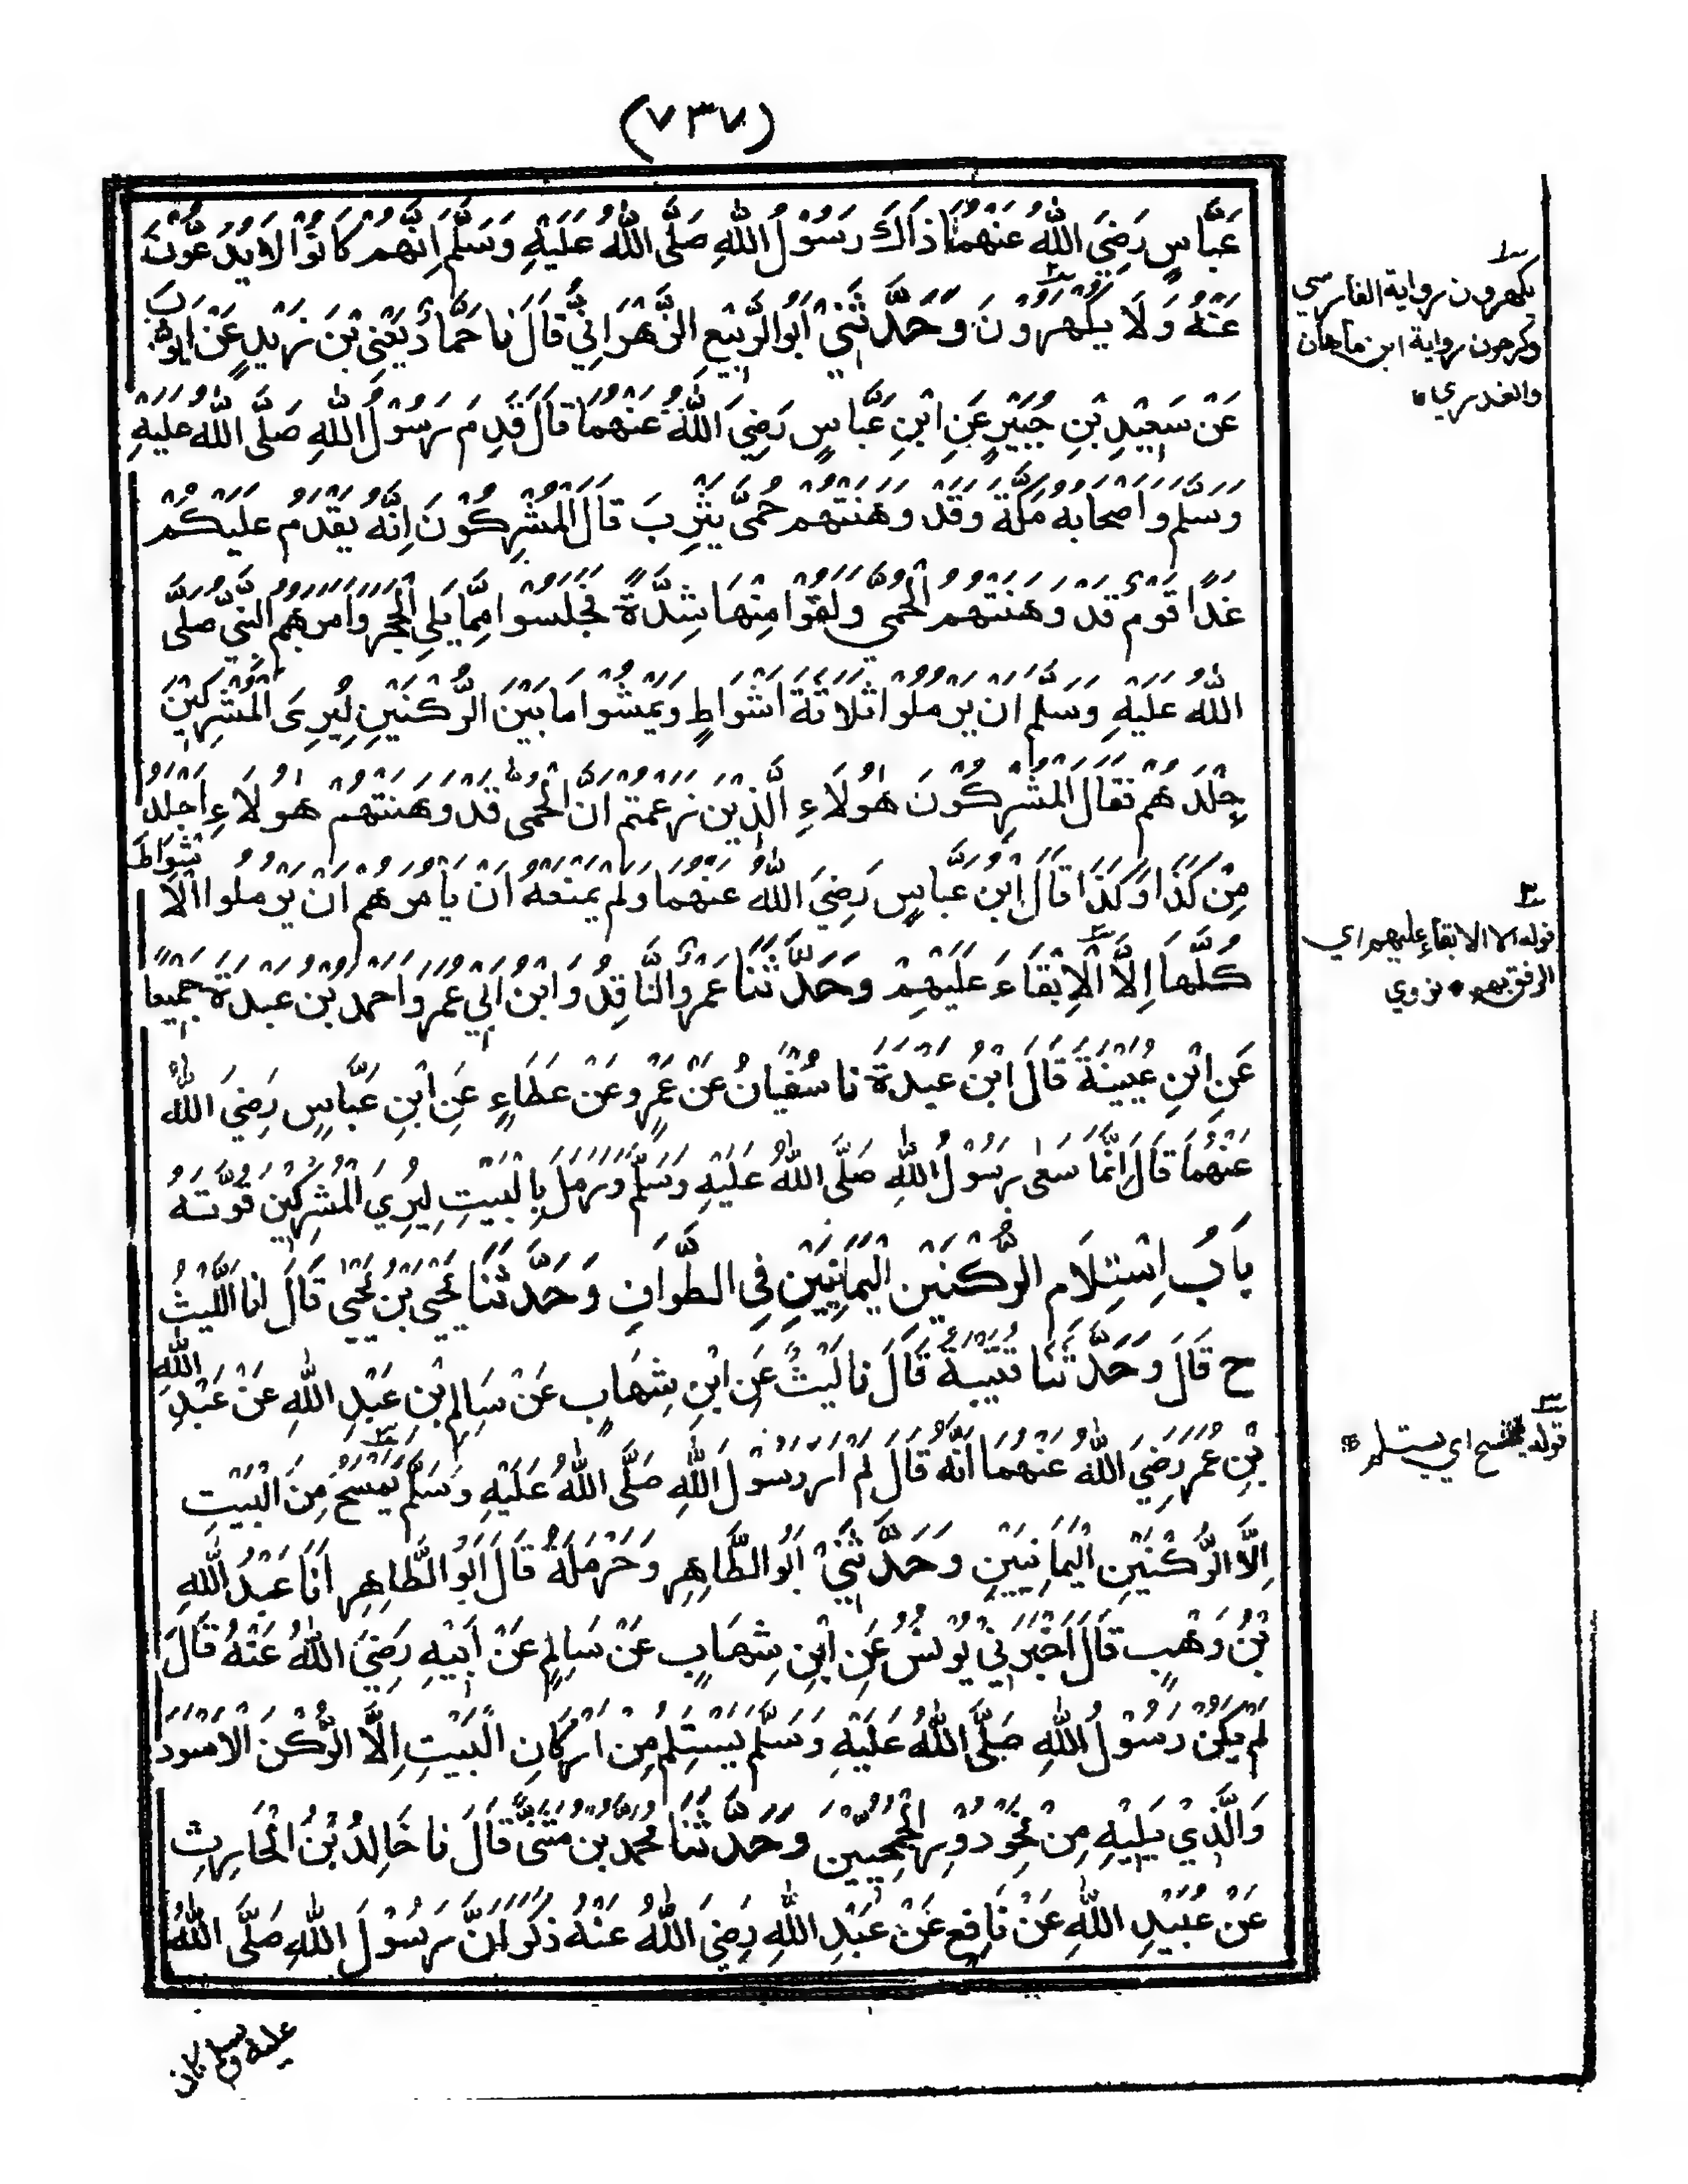 (٧٣٧)
عَبَّاسٍ رَضِيَ اللهُ عَنْهُمَا ذَاكَ رَسُوْلُ اللهِ صَلَّى اللهُ عَلَيْهِ وَسَلَّمَ اِنَّهُمْ كَانُوْا لَا يُدَعُّوْنَ
عَنْهُ وَلَا يُكْهَرُوْنَ وَحَدَّثَنِيْ اَبُو الرَّبِيْعِ الزَّهْرَانِيُّ قَالَ نا حَمَّادٌ يَعْنِيْ بْنَ زَيْدٍ عَنْ اَيُّوْبَ
عَنْ سَعِيْدِ بْنِ جُبَيْرٍ عَنِ ابْنِ عَبَّاسٍ رَضِيَ اللهُ عَنْهُمَا قَالَ قَدِمَ رَسُوْلُ اللهِ صَلَّى اللهُ عَلَيْهِ
وَسَلَّمَ وَاَصْحَابُهُ مَكَّةَ وَقَدْ وَهَنَتْهُمْ حُمَّى يَثْرِبَ قَالَ الْمُشْرِكُوْنَ اِنَّهُ يَقْدَمُ عَلَيْكُمْ
غَدًا قَوْمٌ قَدْ وَهَنَتْهُمُ الْحُمَّى وَلَقُوْا مِنْهَا شِدَّةً فَجَلَسُوْا مِمَّا يَلِي الْحِجْرَ وَاَمَرَهُمُ النَّبِيُّ صَلَّى
اللهُ عَلَيْهِ وَسَلَّمَ اَنْ يَرْمُلُوْا ثَلَاثَةَ اَشْوَاطٍ وَيَمْشُوْا مَا بَيْنَ الرُّكْنَيْنِ لِيُرِىَ الْمُشْرِكِيْنَ
جَلَدَهُمْ فَقَالَ الْمُشْرِكُوْنَ هٰؤُلَاءِ الَّذِيْنَ زَعَمْتُمْ اَنَّ الْحُمَّى قَدْ وَهَنَتْهُمْ هٰؤُلَاءِ اَجْلَدُ
مِنْ كَذَا وَكَذَا قَالَ ابْنُ عَبَّاسٍ رَضِيَ اللهُ عَنْهُمَا وَلَمْ يَمْنَعْهُ اَنْ يَاْمُرَهُمْ اَنْ يَرْمُلُوا الْاَشْوَاطَ
كُلَّهَا اِلَّا الْاِبْقَاءَ عَلَيْهِمْ وَحَدَّثَنَا عَمْرٌو النَّاقِدُ وَابْنُ اَبِيْ عُمَرَ وَاَحْمَدُ بْنُ عَبْدَةَ جَمِيْعًا
عَنِ ابْنِ عُيَيْنَةَ قَالَ ابْنُ عَبْدَةَ نا سُفْيَانُ عَنْ عَمْرٍو عَنْ عَطَاءٍ عَنِ ابْنِ عَبَّاسٍ رَضِيَ اللهُ
عَنْهُمَا قَالَ اِنَّمَا سَعٰى رَسُوْلُ اللهِ صَلَّى اللهُ عَلَيْهِ وَسَلَّمَ وَرَمَلَ بِالْبَيْتِ لِيُرِيَ الْمُشْرِكِيْنَ قُوَّتَهُ
بَابُ اِسْتِلَامِ الرُّكْنَيْنِ الْيَمَانِيَيْنِ فِي الطَّوَافِ وَحَدَّثَنَا يَحْيَى بْنُ يَحْيٰى قَالَ انا اللَّيْثُ
ح قَالَ وَحَدَّثَنَا قُتَيْبَةُ قَالَ نا لَيْثٌ عَنِ ابْنِ شِهَابٍ عَنْ سَالِمِ بْنِ عَبْدِ اللهِ عَنْ عَبْدِ اللهِ
بْنِ عُمَرَ رَضِيَ اللهُ عَنْهُمَا اَنَّهُ قَالَ لَمْ اَرَ رَسُوْلَ اللهِ صَلَّى اللهُ عَلَيْهِ وَسَلَّمَ يَمْسَحُ مِنَ الْبَيْتِ
اِلَّا الرُّكْنَيْنِ الْيَمَانِيَيْنِ وَحَدَّثَنِيْ اَبُو الطَّاهِرِ وَحَرْمَلَةُ قَالَ اَبُو الطَّاهِرِ اَنَا عَبْدُ اللهِ
بْنُ وَهْبٍ قَالَ اَخْبَرَنِيْ يُوْنُسُ عَنِ ابْنِ شِهَابٍ عَنْ سَالِمٍ عَنْ اَبِيْهِ رَضِيَ اللهُ عَنْهُ قَالَ
لَمْ يَكُنْ رَسُوْلُ اللهِ صَلَّى اللهُ عَلَيْهِ وَسَلَّمَ يَسْتَلِمُ مِنْ اَرْكَانِ الْبَيْتِ اِلَّا الرُّكْنَ الْاَسْوَدَ
وَالَّذِيْ يَلِيْهِ مِنْ نَحْوِ دُوْرِ الْجُمَحِيِّيْنَ وَحَدَّثَنَا مُحَمَّدُ بْنُ مُثَنَّى قَالَ نا خَالِدُ بْنُ الْحَارِثِ
عَنْ عُبَيْدِ اللهِ عَنْ نَافِعٍ عَنْ عَبْدِ اللهِ رَضِيَ اللهُ عَنْهُ ذَكَرَ اَنَّ رَسُوْلَ اللهِ صَلَّى اللهُ
عليه وسلم كان
١
يكهرون رواية الفارسي
وكرهون رواية ابن ماهان
والعذري
٢
قوله الا الابقاء عليهم اي
الرفق بهم * نووي
٣
قوله يمسح اي يستلم